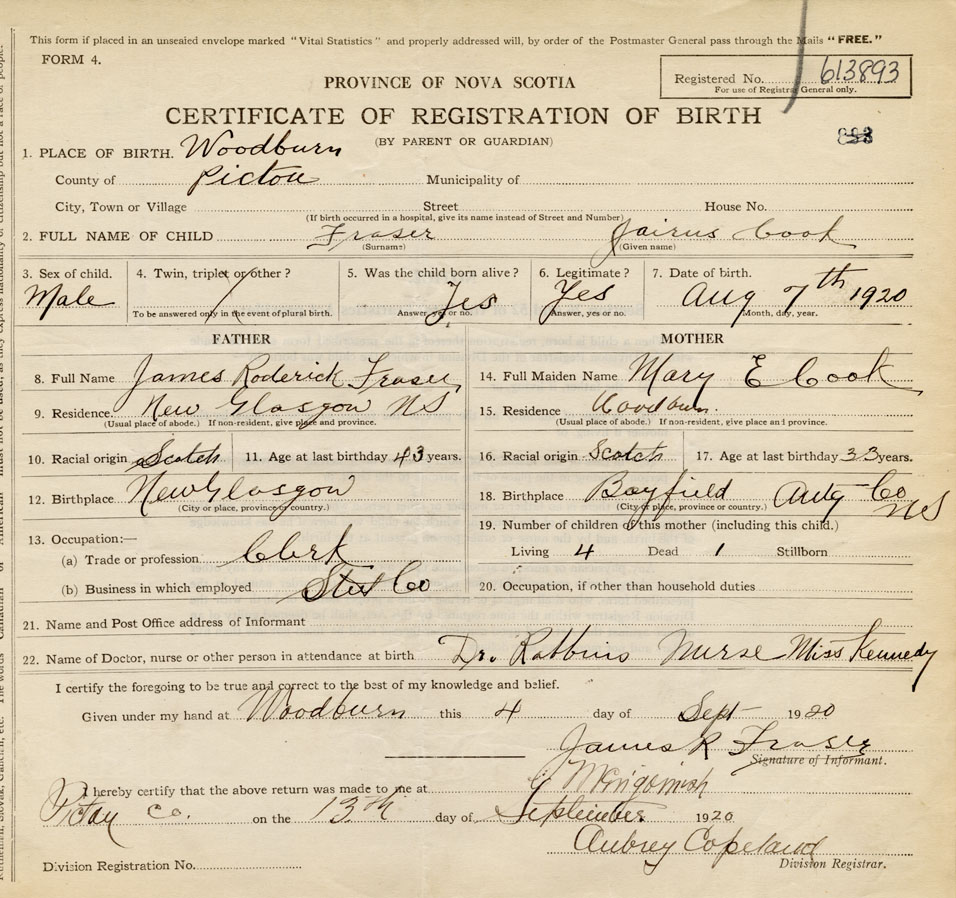 This form if placed in an unsealed envelope marked "Vital Statistics" and properly addressed will, by order of the Postmaster General pass through the Mails "FREE."
FORM 4.
PROVINCE OF NOVA SCOTIA
Registered No. 613893
For use of Registrar General only.
CERTIFICATE OF REGISTRATION OF BIRTH
(BY PARENT OR GUARDIAN)
1. PLACE OF BIRTH. Woodburn
County of Pictou Municipality of
City, Town or Village Street House No.
(If birth occurred in a hospital, give its name instead of Street and Number)
2. FULL NAME OF CHILD Fraser Jairus Cook
(Surname) (Given name)
3. Sex of child. 4. Twin, triplet or other? 5. Was the child born alive? 6. Legitimate? 7. Date of birth.
Male / Yes Yes Aug 7th 1920
To be answered only in the event of plural birth. Answer, yes or no. Answer, yes or no. Month, day, year.
FATHER MOTHER
8. Full Name James Roderick Fraser 14. Full Maiden Name Mary E Cook
9. Residence. New Glasgow NS 15. Residence Woodburn.
(Usual place of abode.) If non-resident, give place and province. (Usual place of abode.) If non-resident, give place and province.
10. Racial origin Scotch 11. Age at last birthday 43 years. 16. Racial origin Scotch 17. Age at last birthday 33 years.
12. Birthplace New Glasgow 18. Birthplace Bayfield Antg Co NS
(City or place, province or country.) (City or place, province or country.)
19. Number of children of this mother (including this child.)
13. Occupation:—
(a) Trade or profession Clerk Living 4 Dead 1 Stillborn
(b) Business in which employed Steel Co 20. Occupation, if other than household duties
21. Name and Post Office address of Informant
22. Name of Doctor, nurse or other person in attendance at birth Dr. Robbins Nurse Miss Kennedy
I certify the foregoing to be true and correct to the best of my knowledge and belief.
Given under my hand at Woodburn this 4 day of Sept 1920
James R Fraser
Signature of Informant.
I hereby certify that the above return was made to me at
Pictou Co. on the 13th day of September 1920
Aubrey Copeland
Division Registration No. Division Registrar.